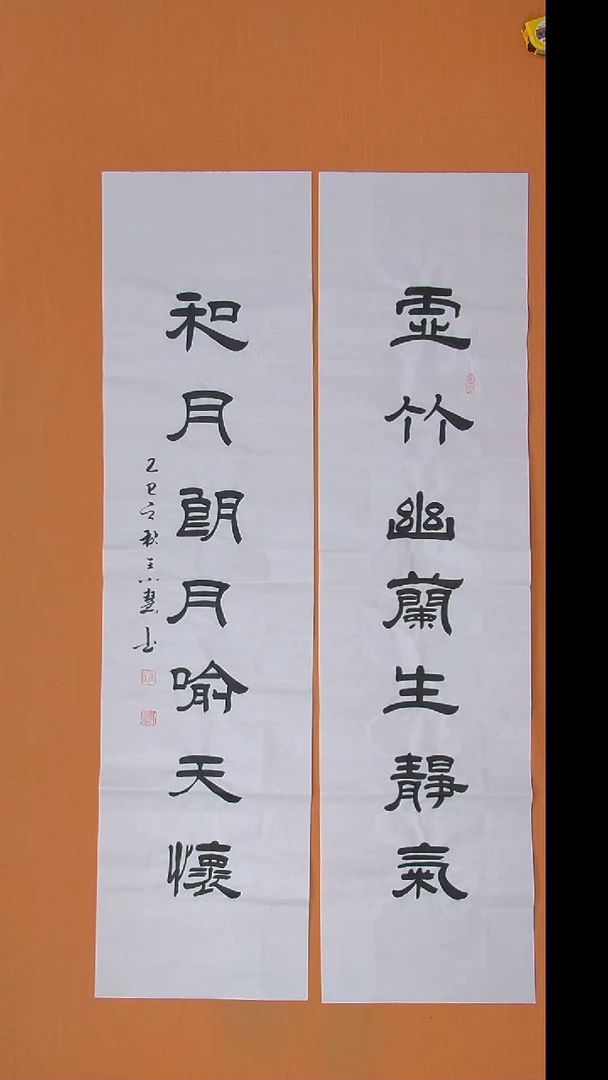 虛竹幽蘭生靜氣
和月朗月喻天懷
乙巳之秋王小慧书